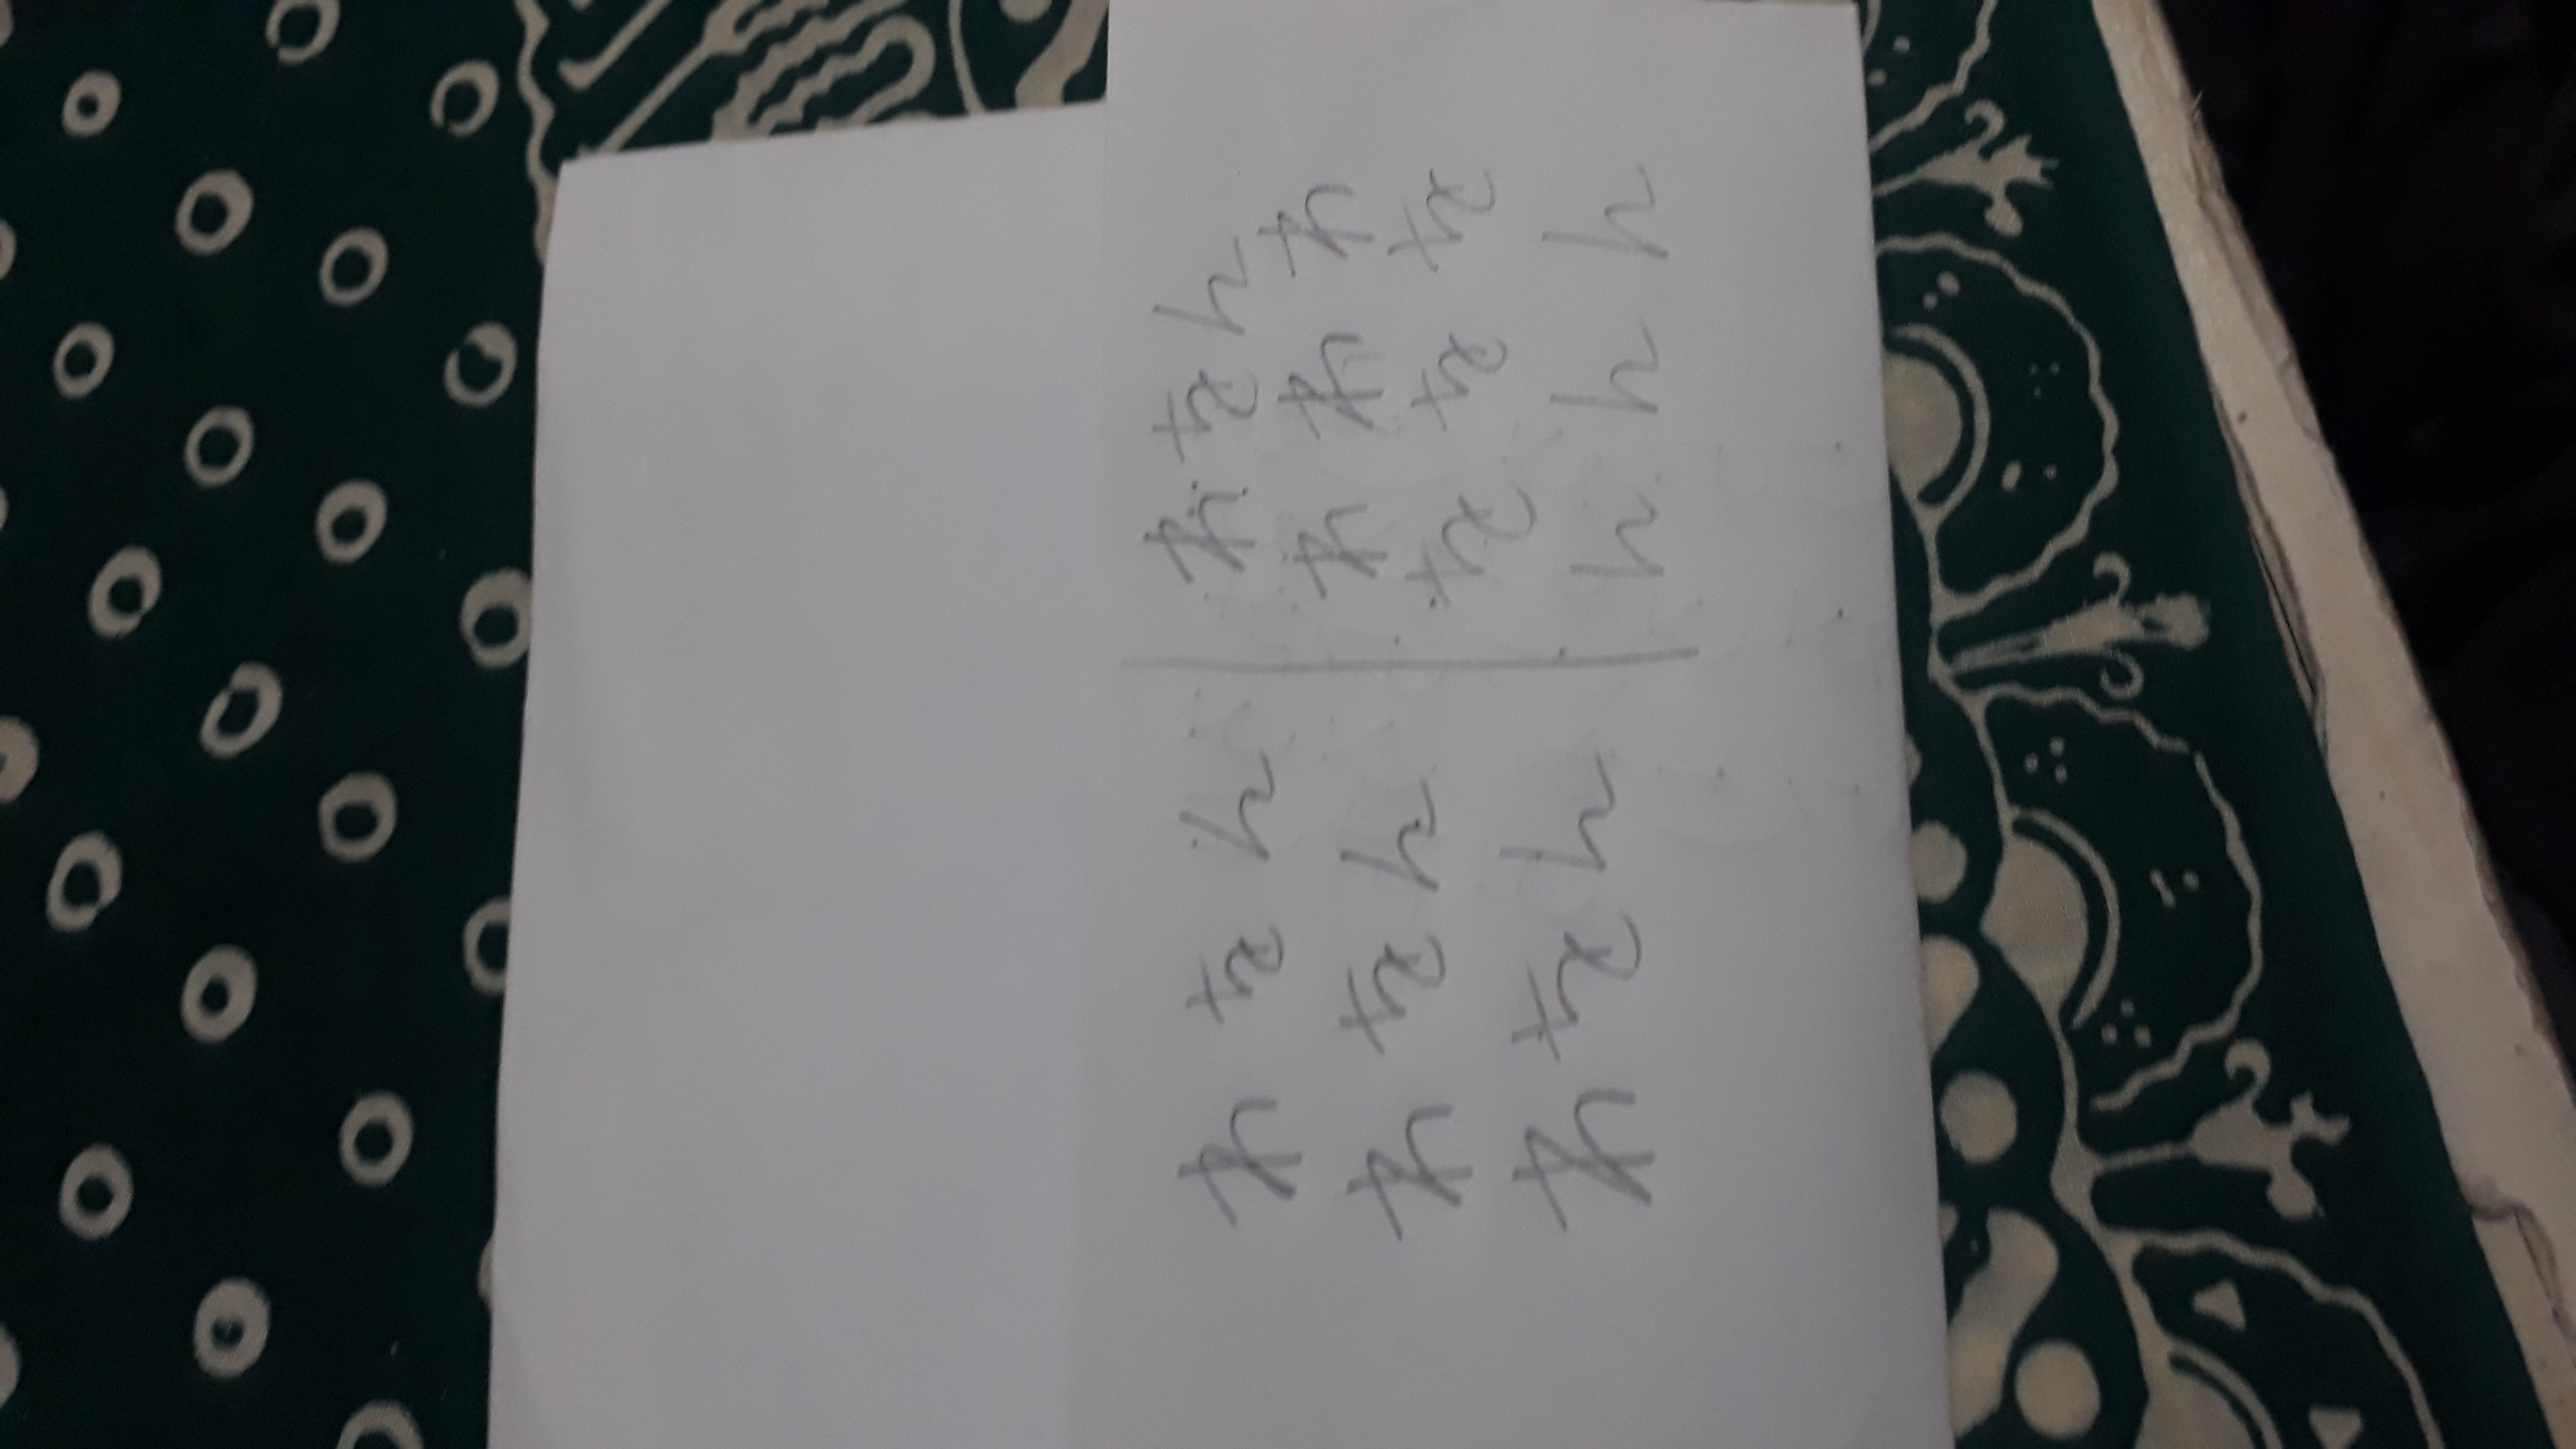 わ をん
わ をん
わ をん
わ をん
わ わ わ
を を を
ん ん ん